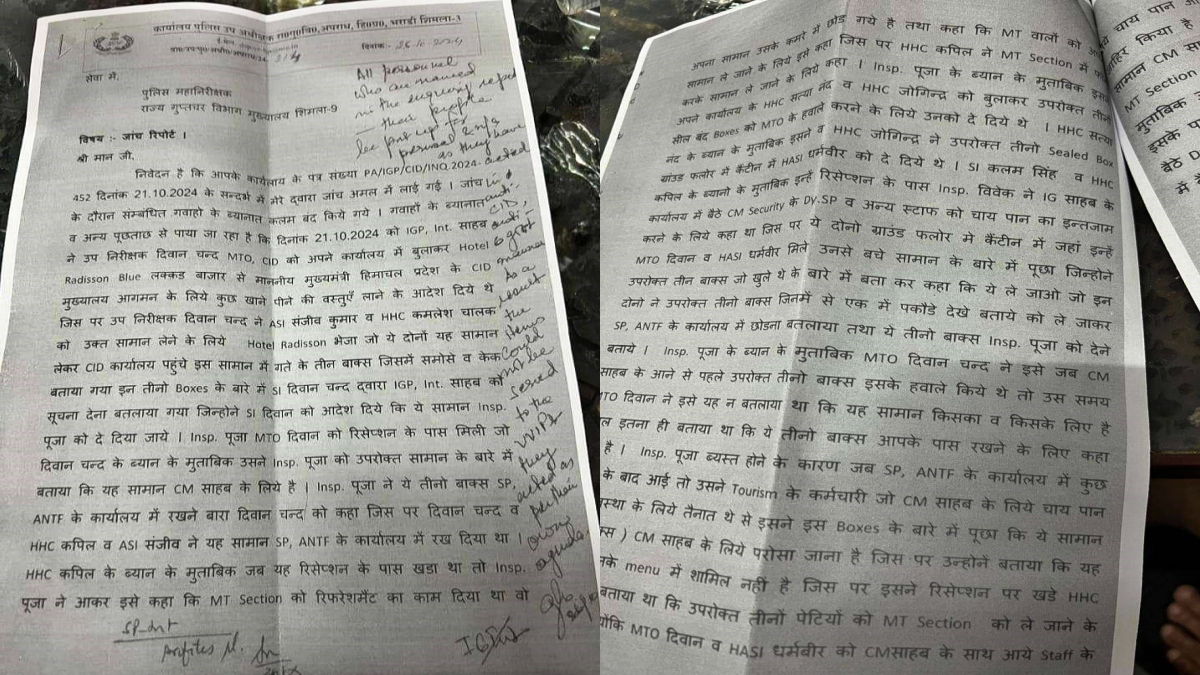 कार्यालय पुलिस उप अधीक्षक रा०गु०वि०,अपराध, हि०प्र०, भराड़ी शिमला-3
दिनांक:- 25-10-2024
सेवा में,
पुलिस महानिरीक्षक
राज्य गुप्तचर विभाग मुख्यालय शिमला-9
विषय :- जांच रिपोर्ट ।
श्री मान जी,
निवेदन है कि आपके कार्यालय के पत्र संख्या PA/IGP/CID/INQ.2024-
452 दिनांक 21.10.2024 के सन्दर्भ में मेरे द्वारा जांच अमल में लाई गई । जांच
के दौरान संम्बधित गवाहो के ब्यानात कलम बंद किये गये । गवाहों के ब्यानात
व अन्य पूछताछ से पाया जा रहा है कि दिनांक 21.10.2024 को IGP, Int. साहब
ने उप निरीक्षक दिवान चन्द MTO, CID को अपने कार्यालय में बुलाकर Hotel
Radisson Blue लक्कड बाजार से माननीय मुख्यमंत्री हिमाचल प्रदेश के CID
मुख्यालय आगमन के लिये कुछ खाने पीने की वस्तुएँ लाने के आदेश दिये थे
जिस पर उप निरीक्षक दिवान चन्द ने ASI संजीव कुमार व HHC कमलेश चालक
को उक्त सामान लेने के लिये Hotel Radisson भेजा जो ये दोनों यह सामान
लेकर CID कार्यालय पहुंचे इस सामान में गते के तीन बाक्स जिसमें समोसे व केक
बताया गया इन तीनो Boxes के बारे में SI दिवान चन्द द्वारा IGP, Int. साहब को
सूचना देना बतलाया गया जिन्होने SI दिवान को आदेश दिये कि ये सामान Insp.
पूजा को दे दिया जाये । Insp. पूजा MTO दिवान को रिसेप्शन के पास मिली जो
दिवान चन्द के ब्यान के मुताबिक उसने Insp. पूजा को उपरोक्त सामान के बारे में
बताया कि यह सामान CM साहब के लिये है । Insp. पूजा ने ये तीनो बाक्स SP,
ANTF के कार्यालय में रखने बारा दिवान चन्द को कहा जिस पर दिवान चन्द व
HHC कपिल व ASI संजीव ने यह सामान SP, ANTF के कार्यालय में रख दिया था ।
HHC कपिल के ब्यान के मुताबिक जब यह रिसेप्शन के पास खडा था तो Insp.
पूजा ने आकर इसे कहा कि MT Section को रिफरेशमैंट का काम दिया था वो
All personnel
who are named
in the enquiry report
— their profiles
be put up for
perusal & n/a
as they have
acted
in
anti-
CID,
anti-
govt
manner
As a
result
the
items
could
not be
served
to the
VVIPs
they
acted as
per their
own
agenda.
SP-Int
profiles pl.
अपना सामान उसके कमरे में छोड गये है तथा कहा कि MT वालों को
सामान ले जाने के लिए इसे कहा जिस पर HHC कपिल ने MT Section में
करके सामान ले जाने के लिये कहा । Insp. पूजा के ब्यान के मुताबिक इसने
अपने कार्यालय के HHC सत्या नंद व HHC जोगिन्द्र को बुलाकर उपरोक्त तीनो
सील बंद Boxes को MTO के हवाले करने के लिये उनको दे दिये थे । HHC सत्या
नंद के ब्यान के मुताबिक इसने व HHC जोगिन्द्र ने उपरोक्त तीनो Sealed Box
ग्राउंड फलोर में कैंटीन में HASI धर्मवीर को दे दिये थे । SI कलम सिंह व HHC
कपिल के ब्यानो के मुताबिक इन्हें रिसेप्शन के पास Insp. विवेक ने IG साहब के
कार्यालय में बैठे CM Security के Dy.SP व अन्य स्टाफ को चाय पान का इन्तजाम
करने के लिये कहा था जिस पर ये दोनो ग्राउंड फलोर मे कैंटीन में जहां इन्हें
MTO दिवान व HASI धर्मवीर मिले उनसे बचे सामान के बारे में पूछा जिन्होने
उपरोक्त तीन बाक्स जो खुले थे के बारे में बता कर कहा कि ये ले जाओ जो इन
दोनो ने उपरोक्त तीनो बाक्स जिनमें से एक में पकौडे देखे बताये को ले जाकर
SP, ANTF के कार्यालय में छोडना बतलाया तथा ये तीनो बाक्स Insp. पूजा को देने
बताये । Insp. पूजा के ब्यान के मुताबिक MTO दिवान चन्द ने इसे जब CM
साहब के आने से पहले उपरोक्त तीनो बाक्स इसके हवाले किये थे तो उस समय
TO दिवान ने इसे यह न बतलाया था कि यह सामान किसका व किसके लिए है
ल इतना ही बताया था कि ये तीनो बाक्स आपके पास रखने के लिए कहा
है । Insp. पूजा ब्यस्त होने के कारण जब SP, ANTF के कार्यालय में कुछ
के बाद आई तो उसने Tourism के कर्मचारी जो CM साहब के लिये चाय पान
स्था के लिये तैनात थे से इसने इस Boxes के बारे में पूछा कि ये सामान
क्स ) CM साहब के लिये परोसा जाना है जिस पर उन्होनें बताया कि यह
नके menu में शामिल नहीं है जिस पर इसने रिसेप्शन पर खडे HHC
बताया था कि उपरोक्त तीनों पेटियों को MT Section को ले जाने के
योंकि MTO दिवान व HASI धर्मबीर को CMसाहब के साथ आये Staff के
चाय पान
सामान CM
MT Section
मुताबिक
इसके
बैठे